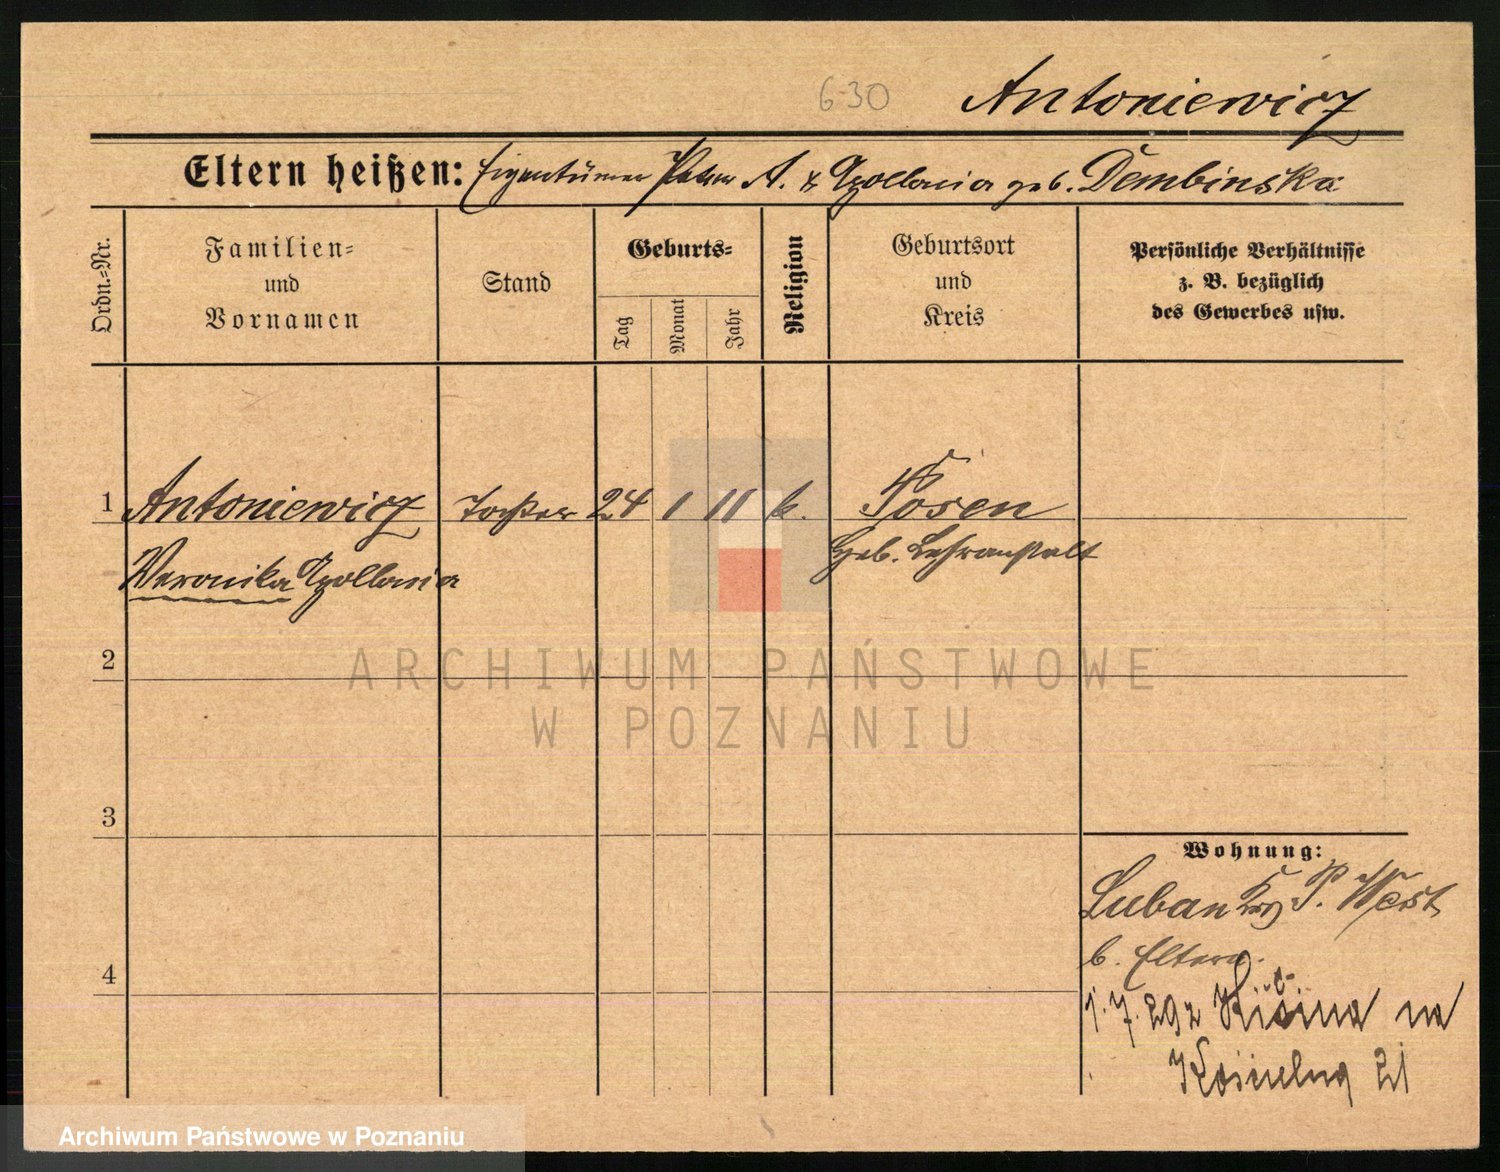 630 Antoniewicz
Eltern heißen: Eigentümer Peter A. & Apollonia geb. Dembinska
Ordn.-Nr.
Familien-
und
Vornamen
Stand
Geburts-
Tag
Monat
Jahr
Religion
Geburtsort
und
Kreis
Persönliche Verhältnisse
z. B. bezüglich
des Gewerbes usw.
1 Antoniewicz Tochter 24 1 11 k. Posen
Veronika Apollonia Heb. Lehranstalt
2
3
4
Wohnung:
Luban P. West
b. Eltern.
1.7.29 z na
Kościelną 21
ARCHIWUM PAŃSTWOWE
W POZNANIU
Archiwum Państwowe w Poznaniu